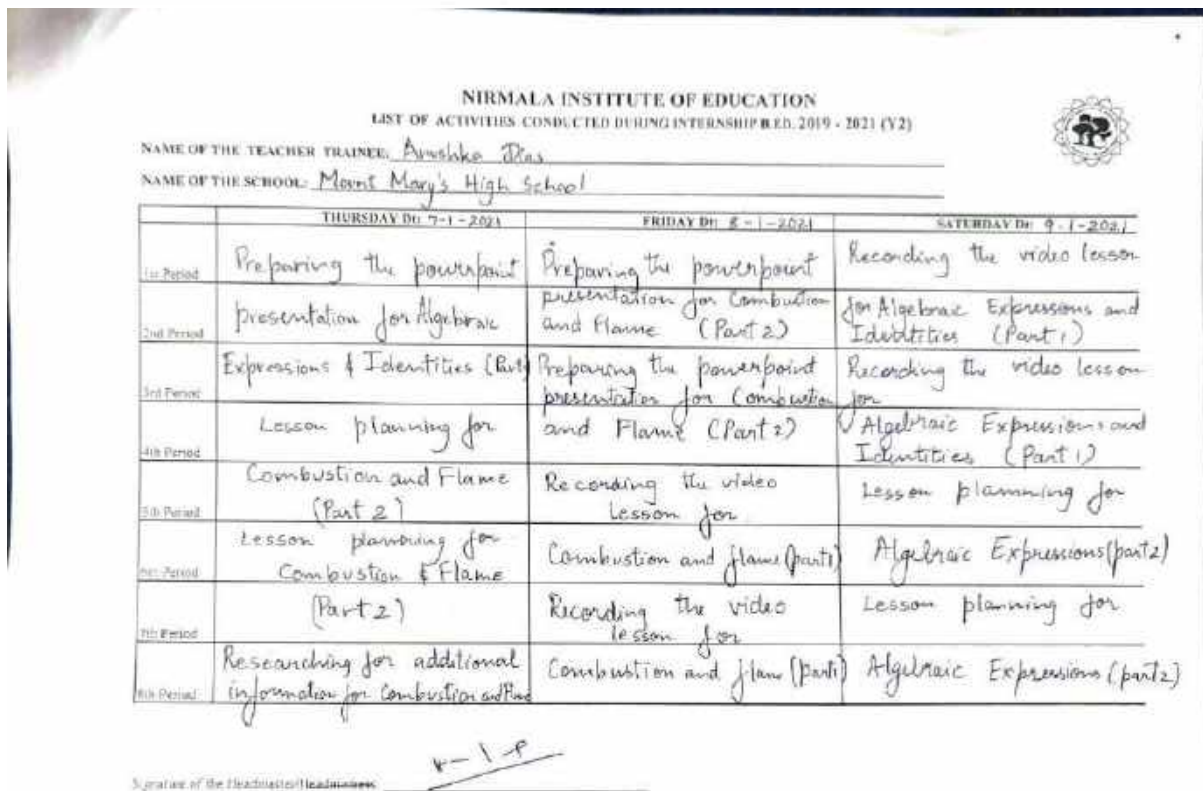 NIRMALA INSTITUTE OF EDUCATION
LIST OF ACTIVITIES CONDUCTED DURING INTERNSHIP B.ED. 2019 - 2021 (Y2)
NAME OF THE TEACHER TRAINEE: Anushka Dias
NAME OF THE SCHOOL: Mount Mary's High School
THURSDAY Dt: 7-1-2021 FRIDAY Dt: 8-1-2021 SATURDAY Dt: 9-1-2021
1st Period
Preparing the powerpoint
Preparing the powerpoint
Recording the video lesson
2nd Period
presentation for Algebraic
presentation for Combustion
and Flame (Part 2)
for Algebraic Expressions and
Identities (Part 1)
3rd Period
Expressions & Identities (Part
Preparing the powerpoint
presentation for Combustion
Recording the video lesson
for
4th Period
Lesson planning for
and Flame (Part 2)
Algebraic Expressions and
Identities (Part 1)
5th Period
Combustion and Flame
(Part 2)
Recording the video
lesson for
Lesson planning for
6th Period
Lesson planning for
Combustion & Flame
Combustion and flame (part1)
Algebraic Expressions (part2)
7th Period
(Part 2)
Recording the video
lesson for
Lesson planning for
8th Period
Researching for additional
information for Combustion and
Combustion and flame (part1)
Algebraic Expressions (part2)
Signature of the Headmaster/Headmistress